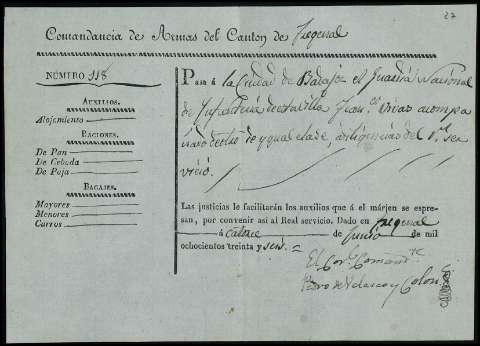 27
Comandancia de Armas del Canton de Fregenal
NÚMERO 118
AUXILIOS.
Alojamiento
RACIONES.
De Pan
De Cebada
De Paja
BAGAJES.
Mayores
Menores
Carros
Pasa á la Ciudad de Badajoz el Guardia Nacional
de Infantería de esta villa Fran.co Vivas acompa
ñado de otro de ygual clase, a diligencias del R.l ser
vicio.
Las justicias le facilitarán los auxilios que á el márjen se espre-
san, por convenir asi al Real servicio. Dado en Fregenal
á catorce de Junio de mil
ochocientos treinta y seis.
El Cor.l Comand.te
Pedro de Velasco y Colon